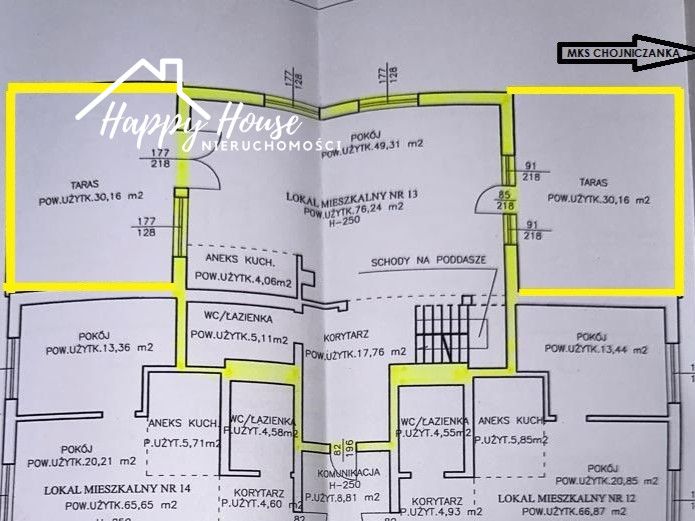 MKS CHOJNICZANKA
Happy House
NIERUCHOMOŚCI
177
128
177
128
POKÓJ
POW.UŻYTK.49,31 m2
177
218
TARAS
POW.UŻYTK.30,16 m2
177
128
LOKAL MIESZKALNY NR 13
POW.UŻYTK.76,24 m2
H-250
91
218
85
218
91
218
TARAS
POW.UŻYTK.30,16 m2
ANEKS KUCH.
POW.UŻYTK.4,06m2
SCHODY NA PODDASZE
WC/ŁAZIENKA
POW.UŻYTK.5,11 m2
KORYTARZ
POW.UŻYTK.17,76 m2
POKÓJ
POW.UŻYTK.13,36 m2
POKÓJ
POW.UŻYTK.13,44 m2
ANEKS KUCH.
P.UŻYT.5,71m2
WC/ŁAZIENKA
P.UŻYT.4,58m2
82
196
WC/ŁAZIENKA
P.UŻYT.4,55m2
ANEKS KUCH.
P.UŻYT.5,85m2
POKÓJ
POW.UŻYTK.20,21 m2
KOMUNIKACJA
H-250
P.UŻYT.8,81 m2
POKÓJ
POW.UŻYTK.20,85 m2
LOKAL MIESZKALNY NR 14
POW.UŻYTK.65,65 m2
H-250
KORYTARZ
P.UŻYT.4,60 m2
82
82
KORYTARZ
P.UŻYT.4,93 m2
LOKAL MIESZKALNY NR 12
POW.UŻYTK.66,87 m2